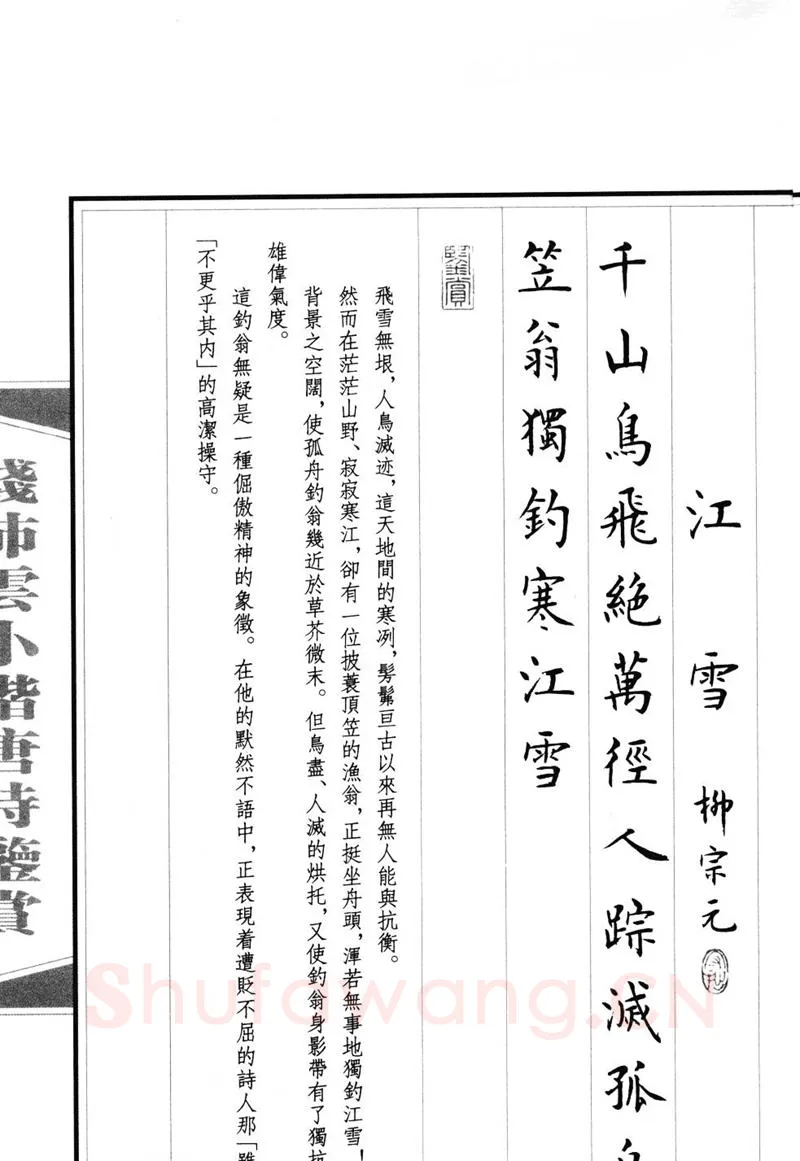 江雪 柳宗元
千山鳥飛絶萬徑人踪滅孤
笠翁獨釣寒江雪
鑒賞
飛雪無垠，人鳥滅迹，這天地間的寒冽，髣髴亘古以來再無人能與抗衡。
然而在茫茫山野、寂寂寒江，卻有一位披蓑頂笠的漁翁，正挺坐舟頭，渾若無事地獨釣江雪！
背景之空闊，使孤舟釣翁幾近於草芥微末。但鳥盡、人滅的烘托，又使釣翁身影帶有了獨抗
雄偉氣度。
這釣翁無疑是一種倔傲精神的象徵。在他的默然不語中，正表現着遭貶不屈的詩人那「雖
「不更乎其内」的高潔操守。
錢沛雲小楷唐詩鑒賞
Shufawang.CN